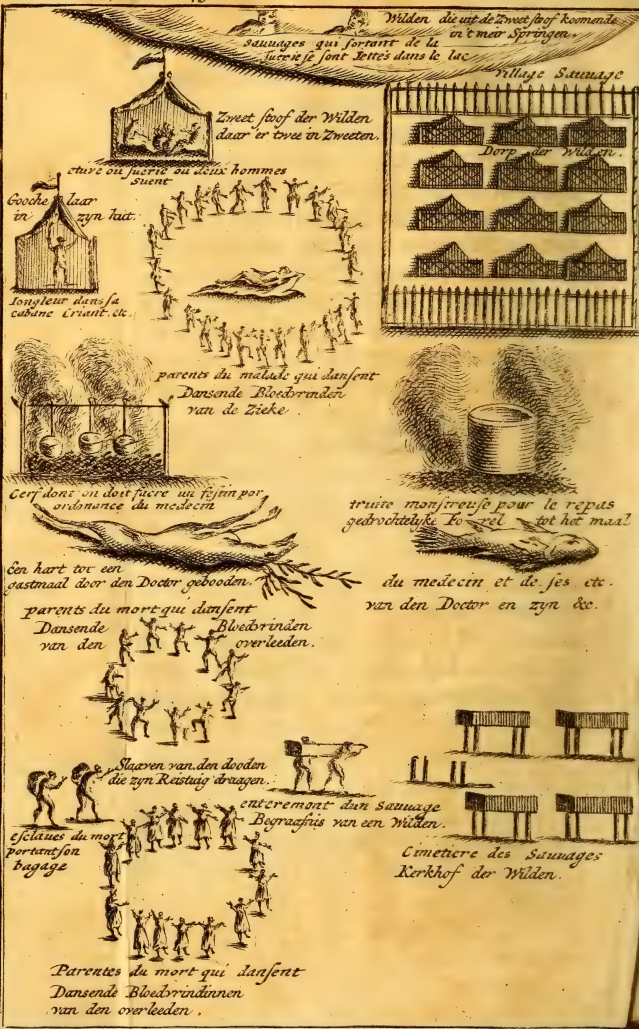 Wilden die uit de Zweet stoof koomende
in't meir Springen.
sauvages qui sortant de la
suerie se sont Iettés dans le lac
village Sauvage
Zweet stoof der Wilden
daar er twee in Zweeten.
etuve ou suerie ou deux hommes
suent
Dorp der Wilden.
Gooche laar
in zyn hut.
Iongleur dans sa
cabane Criant. etc.
parents du malade qui dansent
Dansende Bloedvrinden
van de Zieke.
Cerf dont on doit fucre un festin por
ordonance du medecin
truite monstreuse pour le repas
gedrochtelyke Fo rel tot het maal
Een hart tot een
gastmaal door den Doctor gebooden.
du medecin et de ses etc.
van den Doctor en zyn &c.
parents du mort qui dansent
Dansende Bloedvrinden
van den overleeden.
Slaaven van den dooden
die zyn Reistuig draagen.
esclaves du mort
portant son
bagage
enteremont dun Sauvage
Begraafnis van een Wilden.
Cimetiere des Sauvages
Kerkhof der Wilden.
Parentes du mort qui dansent
Dansende Bloedvrindinnen
van den overleeden.